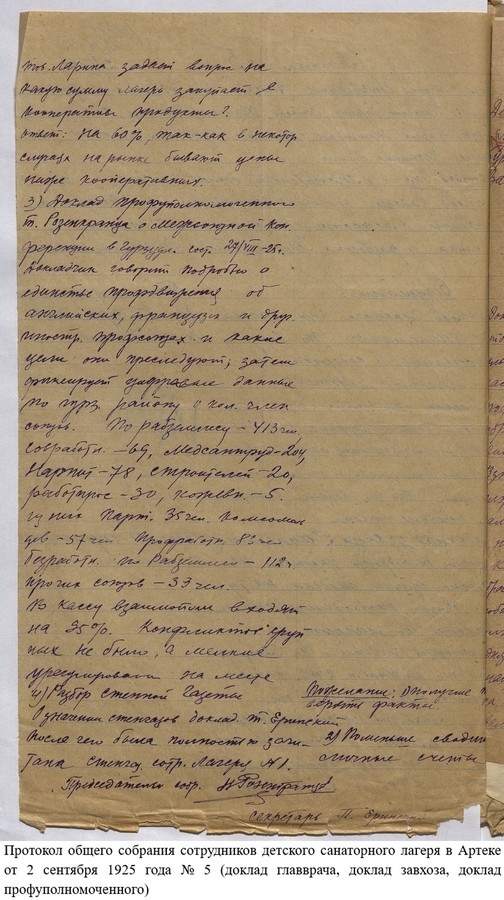 тов. Ларина задает вопрос на
какую сумму лагерь закупает в
кооперативе продукты?
Ответ: на 60%, так-как в некотор
случаях на рынке бывают цены
ниже кооперативных.
3) Доклад профуполномоченного
т. Розенкранца о Межсоюзной Кон
ференции в Гурзуфе. сост. 27/VIII-25г.
Докладчик говорит подробно о
единстве профдвижения об
английских, французск и друг
иностр. профсоюзах и какие
цели они преследуют; затем
фиксирует цифровые данные
по гурз. району о кол. член
союзов. По рабземлесу - 413 чел,
Совработн. - 69, Медсантруд - 204,
Нарпит - 78, строителей - 20,
работпрос - 30, кожевн. - 5.
из них Парт. 35 чел. Комсомол
цев - 57 чел Профработн. 83 чел
безработн. по Рабземлесу - 112 ч
прочих союзов - 33 чел.
В кассу взаимопом входят
на 35%. Конфликтов круп
ных не было, а мелкие
урегулировали на месте
4) Разбор стенной Газеты
О значении стенгазеты доклад. т. Еринский
После чего была полностью зачи-
тана стенгаз. сотр. Лагеря №1.
Пожелание: 1) получше
верять факты
2) Поменьше сводит
личные счеты
Председатель сотр. Розенкранц
Секретарь П. Ерин
Протокол общего собрания сотрудников детского санаторного лагеря в Артеке
от 2 сентября 1925 года № 5 (доклад главврача, доклад завхоза, доклад
профуполномоченного)